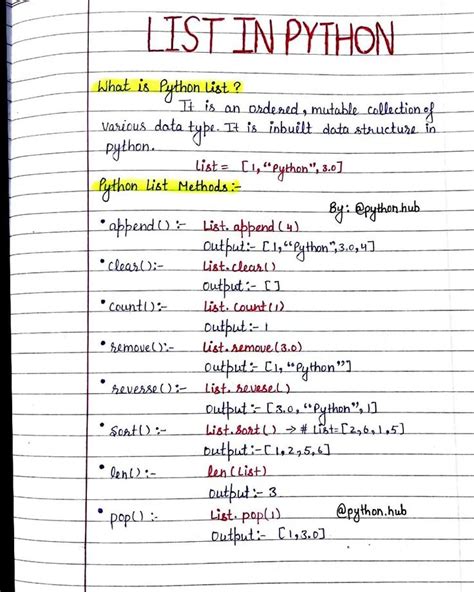 LIST IN PYTHON
What is Python List ?
It is an ordered, mutable collection of
various data type. It is inbuilt data structure in
python.
List = [1, "Python", 3.0]
Python List Methods:-
By: @python.hub
• append() :- List.append(4)
Output:- [1, "Python", 3.0, 4]
• clear():- List.clear()
Output:- []
• count():- List.count(1)
Output:- 1
• remove():- List.remove(3.0)
Output:- [1, "Python"]
• reversse():- List.revese()
Output:- [3.0, "Python", 1]
• sort():- List.sort() → # List=[2,6,1,5]
Output:- [1,2,5,6]
• len():- len(List)
Output:- 3
• pop() :- List.pop(1) @python.hub
Output:- [1,3.0]